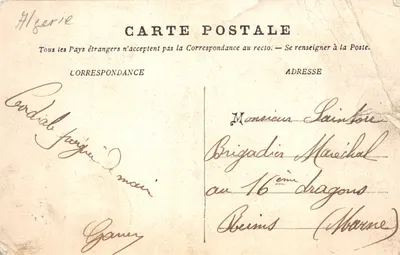 Algerie
CARTE POSTALE
Tous les Pays étrangers n'acceptent pas la Correspondance au recto. — Se renseigner à la Poste.
CORRESPONDANCE
ADRESSE
Cordiale poignée de main
Monsieur Saintoin
Brigadier Maréchal
au 16ème dragons
Reims (Marne)